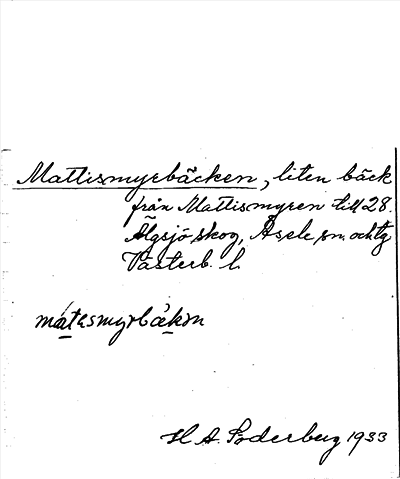 Mattismyrbäcken, liten bäck
från Mattismyren till 28.
Älgsjö skog, Åsele sn. och tg
Västerb. l.
mátısmyrbä̀kən
H A. Söderberg 1933